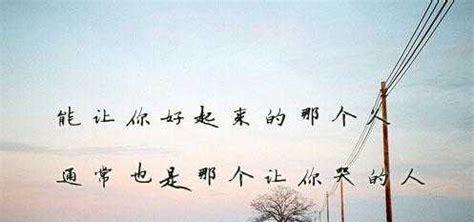 能让你好起来的那个人
通常也是那个让你哭的人